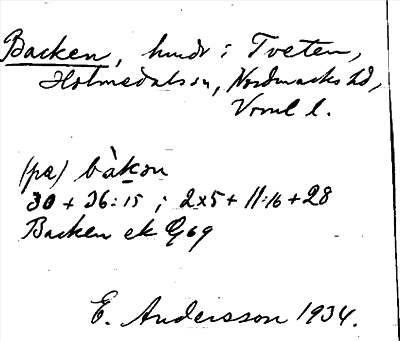 Backen, hmdr i Tveten,
Holmedals sn, Nordmarks hd,
Vrml l.
(på) bàkɑn
30 + 36:15 ; 2x5 + 11:16 + 28
Backen ek G69
E. Andersson 1934.